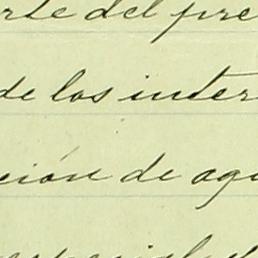 rte del pre
de los inter
ción de agu